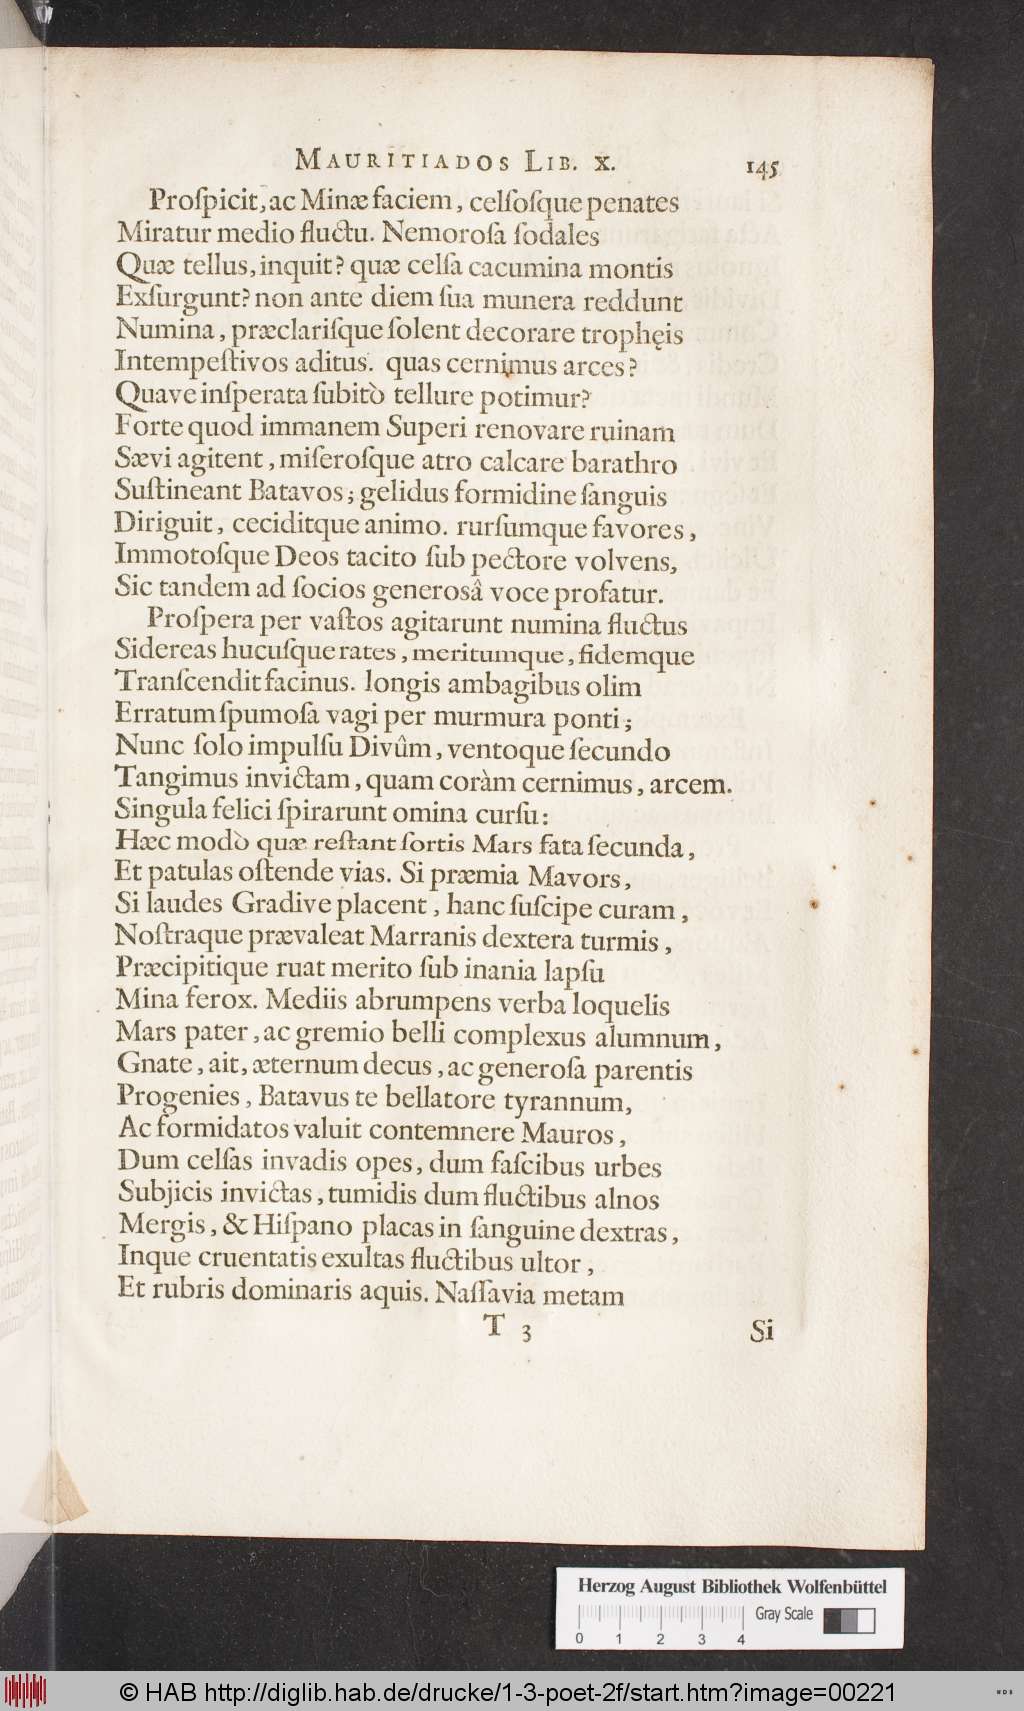 MAURITIADOS LIB. X. 145
Proſpicit, ac Minæ faciem, celſoſque penates
Miratur medio fluctu. Nemoroſa ſodales
Quæ tellus, inquit? quæ celſa cacumina montis
Exſurgunt? non ante diem ſua munera reddunt
Numina, præclariſque ſolent decorare trophęis
Intempeſtivos aditus. quas cernimus arces?
Quave inſperata ſubitò tellure potimur?
Forte quod immanem Superi renovare ruinam
Sævi agitent, miſeroſque atro calcare barathro
Suſtineant Batavos; gelidus formidine ſanguis
Diriguit, ceciditque animo. rurſumque favores,
Immotoſque Deos tacito ſub pectore volvens,
Sic tandem ad ſocios generosâ voce profatur.
Proſpera per vaſtos agitarunt numina fluctus
Sidereas hucuſque rates, meritumque, fidemque
Tranſcendit facinus. longis ambagibus olim
Erratum ſpumoſa vagi per murmura ponti;
Nunc ſolo impulſu Divûm, ventoque ſecundo
Tangimus invictam, quam coràm cernimus, arcem.
Singula felici ſpirarunt omina curſu:
Hæc modò quæ reſtant ſortis Mars fata ſecunda,
Et patulas oſtende vias. Si præmia Mavors,
Si laudes Gradive placent, hanc ſuſcipe curam,
Noſtraque prævaleat Marranis dextera turmis,
Præcipitique ruat merito ſub inania lapſu
Mina ferox. Mediis abrumpens verba loquelis
Mars pater, ac gremio belli complexus alumnum,
Gnate, ait, æternum decus, ac generoſa parentis
Progenies, Batavus te bellatore tyrannum,
Ac formidatos valuit contemnere Mauros,
Dum celſas invadis opes, dum faſcibus urbes
Subjicis invictas, tumidis dum fluctibus alnos
Mergis, & Hiſpano placas in ſanguine dextras,
Inque cruentatis exultas fluctibus ultor,
Et rubris dominaris aquis. Naſſavia metam
T 3 Si
Herzog August Bibliothek Wolfenbüttel
Gray Scale
0 1 2 3 4
© HAB http://diglib.hab.de/drucke/1-3-poet-2f/start.htm?image=00221